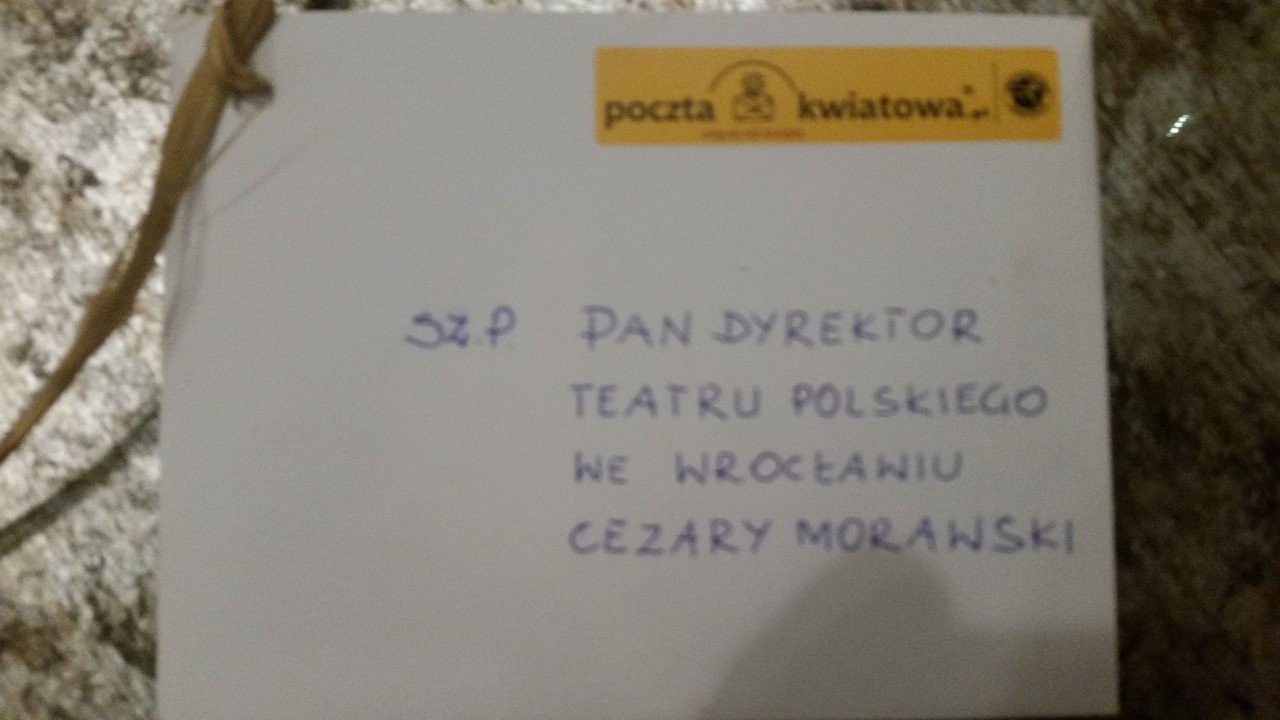 poczta kwiatowa
SZ.P. PAN DYREKTOR
TEATRU POLSKIEGO
WE WROCŁAWIU
CEZARY MORAWSKI